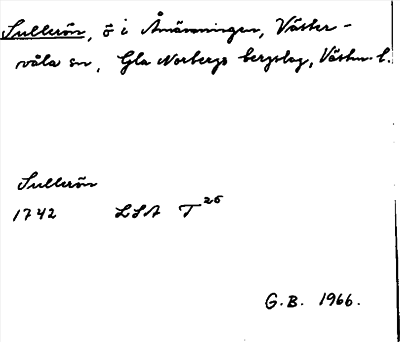 Sullerön, ö i Åmänningen, Väster-
våla sn, Gla Norbergs bergslag, Västm. l.
Sullerön
1742 LSA T 26
G.B. 1966.